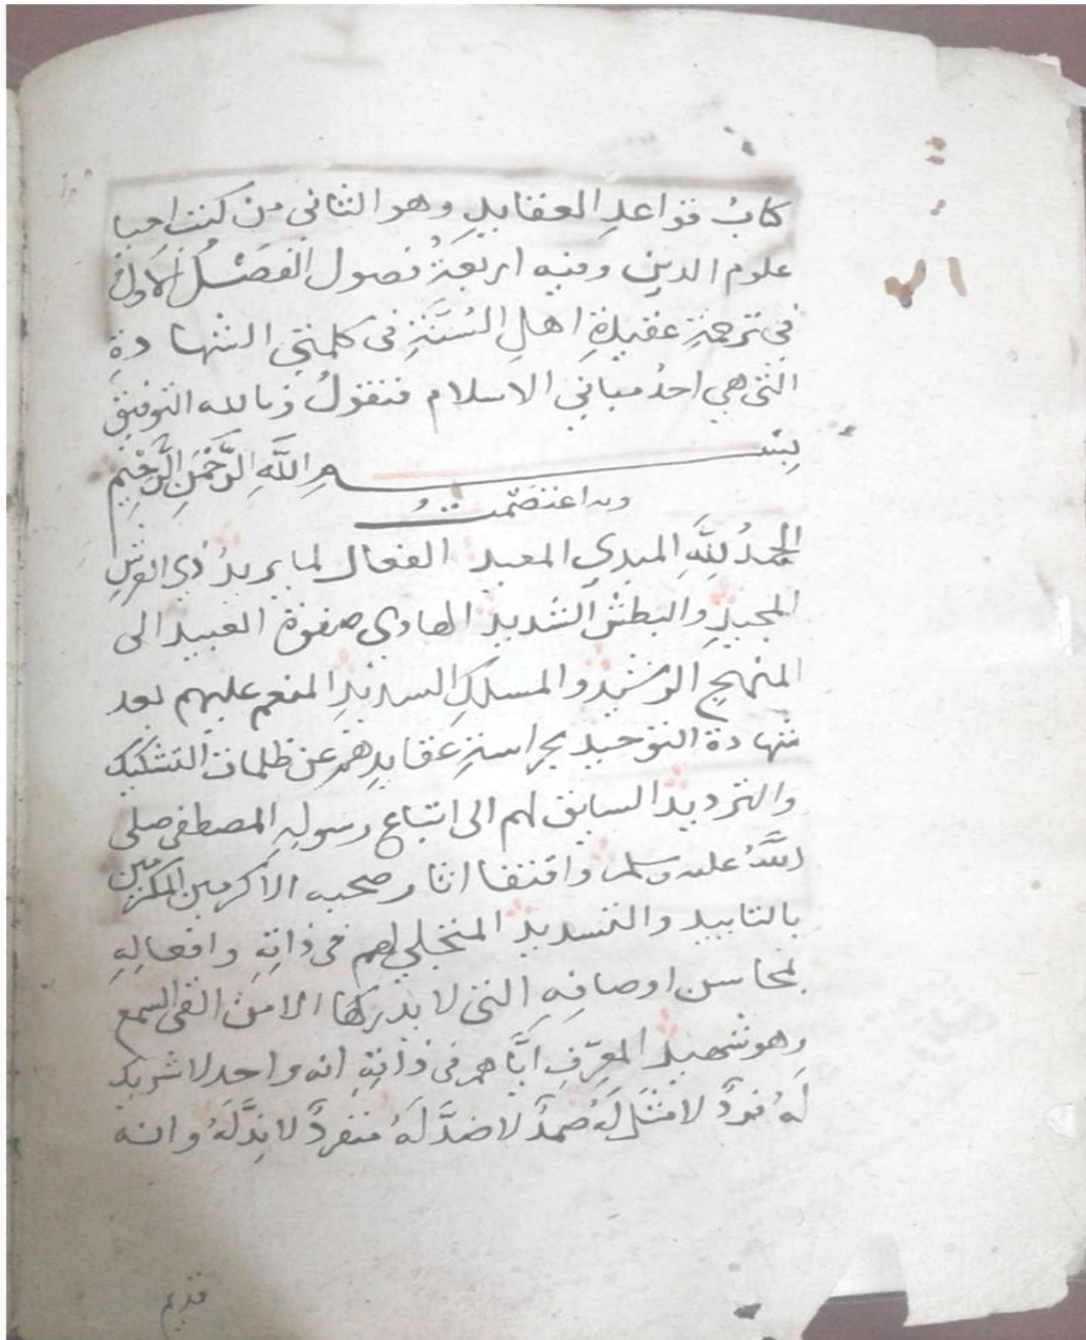 كتابُ قواعدِ العقايدِ وهو الثانى من كتب احيا
علوم الدين وفيه اربعةُ فصول الفصْلُ الاول
فى ترجمةِ عقيدةِ اهلِ السُنَّةِ فى كلمتي الشهادةِ
التى هي احدُ مباني الاسلام فنقولُ وبالله التوفيق
بِسْمِ اللَّهِ الرَّحْمَنِ الرَّحِيْمِ
وبه اعتصَمْتُ
الحمدُ لِلَّهِ المبدي المعيد الفعال لما يريدُ ذي العرشِ
المجيدِ والبطش الشديد الهادى صفوة العبيد الى
المنهج الرشيد والمسلكِ السديدِ المنعم عليهم بعد
شهادة التوحيد بحراستِ عقايدِهم عن ظلمات التشكيك
والترديد السابق لهم الى اتباع رسولِهِ المصطفى صلى
اللَّهُ عليه وسلم واقتفا اثار صحبه الاكرمين المكرمين
بالتاييد والتسديد المتجلي لهم فى ذاتِهِ وافعالِهِ
بمحاسن اوصافِهِ التى لا يدركها الا من القى السمع
وهو شهيد المعرِّفِ ايَّاهم فى ذاتِهِ انه واحد لا شريك
لَهُ فردٌ لا مثلَ لَهُ صمدٌ لا ضدَّ لَهُ منفردٌ لا نِدَّ لَهُ وانه
قديم